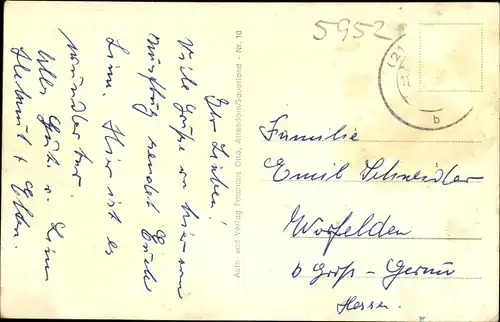 5952
(21
b
Ihr Lieben!
Viele Grüße von hier vom
Ausflug sendet Euch
Hier ist es
wunderbar.
Alles Gute u.
Helmut +
Aufn. und Verlag Fotohaus Otto, Attendorn/Sauerland - Nr. 10
Familie
Emil Schneider
Worfelden
b Groß-Gerau
Hessen.